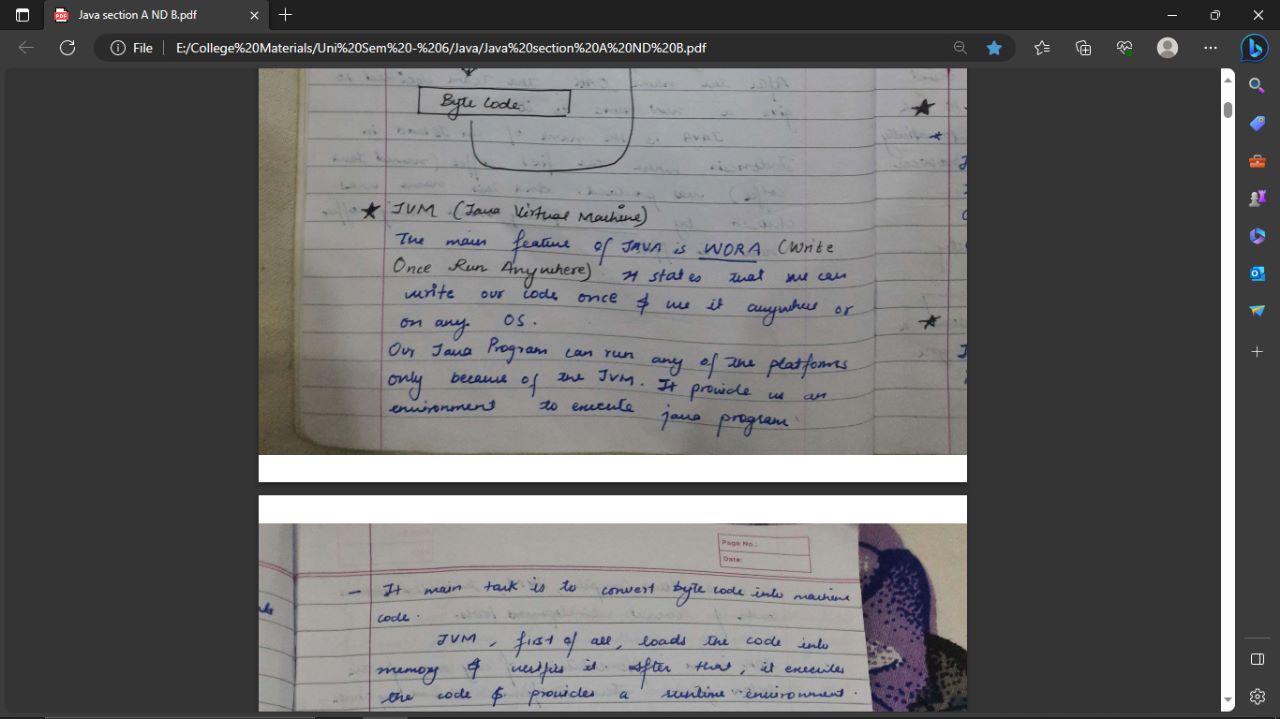 Java section A ND B.pdf
File
E:/College%20Materials/Uni%20Sem%20-%206/Java/Java%20section%20A%20ND%20B.pdf
Byte Code
★ JVM (Java Virtual Machine)
The main feature of JAVA is WORA (Write
Once Run Anywhere) It states that we can
write our code once & use it anywhere or
on any OS.
Our Java Program can run any of the platforms
only because of the JVM. It provide us an
environment to execute java program
Page No.:
Date:
— It main task is to convert byte code into machine
code.
JVM, first of all, loads the code into
memory & verifies it. After that, it executes
the code & provides a runtime environment.